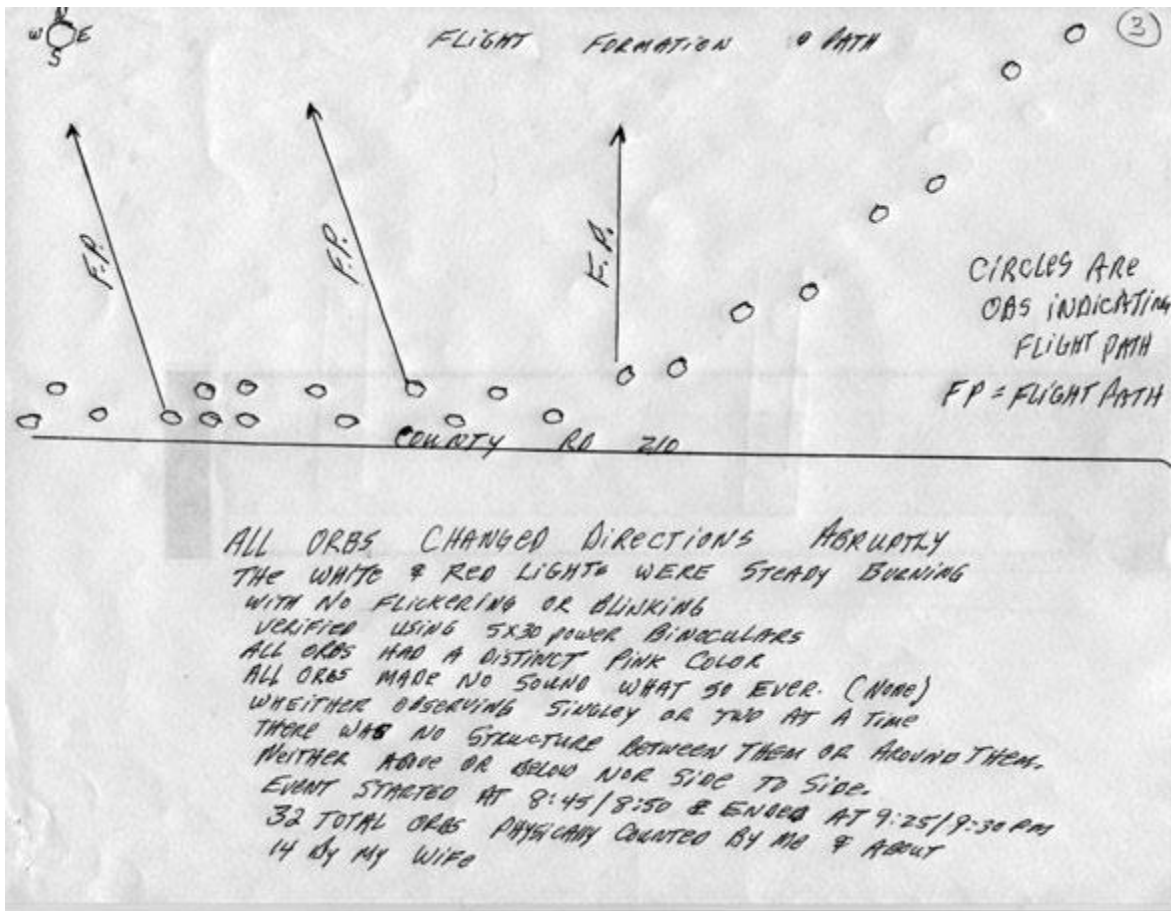 N
W E
S
FLIGHT FORMATION & PATH
3
F.P.
F.P.
F.P.
CIRCLES ARE
OBS INDICATING
FLIGHT PATH
FP = FLIGHT PATH
COUNTY RD 210
ALL ORBS CHANGED DIRECTIONS ABRUPTLY
THE WHITE & RED LIGHTS WERE STEADY BURNING
WITH NO FLICKERING OR BLINKING
VERIFIED USING 5X30 POWER BINOCULARS
ALL ORBS HAD A DISTINCT PINK COLOR
ALL ORBS MADE NO SOUND WHAT SO EVER. (NONE)
WHEITHER OBSERVING SINGLEY OR TWO AT A TIME
THERE WAS NO STRUCTURE BETWEEN THEM OR AROUND THEM.
NEITHER ABOVE OR BELOW NOR SIDE TO SIDE.
EVENT STARTED AT 8:45/8:50 & ENDED AT 9:25/9:30 PM
32 TOTAL ORBS PHYSICALLY COUNTED BY ME & ABOUT
14 BY MY WIFE